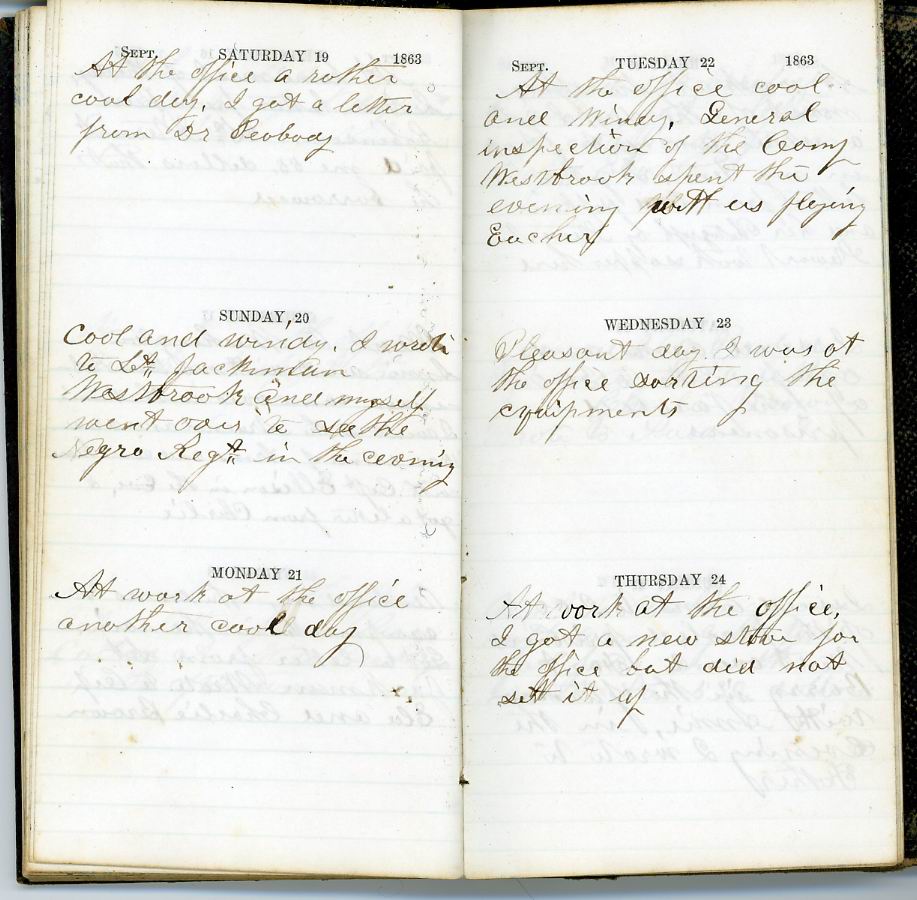 SEPT. SATURDAY 19 1863
At the office a rather
cool day. I got a letter
from Dr Peabody
SUNDAY, 20
Cool and windy. I wrote
to Lt. Jackman
Westbrook and myself
went over to see the
Negro Regt. in the evening
MONDAY 21
At work at the office
another cool day
SEPT. TUESDAY 22 1863
At the office cool
and Windy. General
inspection of the Camp
Westbrook spent the
evening with us playing
Eucher
WEDNESDAY 23
Pleasant day. I was at
the office sorting the
equipments
THURSDAY 24
At work at the office,
I got a new stove for
the office but did not
sett it up